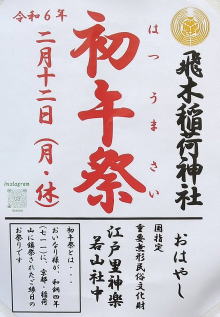 飛木稲荷神社
初午祭
はつうまさい
令和6年
二月十二日(月・休)
Instagram
おはやし
国指定
重要無形民俗文化財
江戸里神楽
若山社中
初午祭とは・・・
おいなり様が、和銅四年
(七一一)に、京都・稲荷
山に鎮祭されたご縁日の
お祭りです